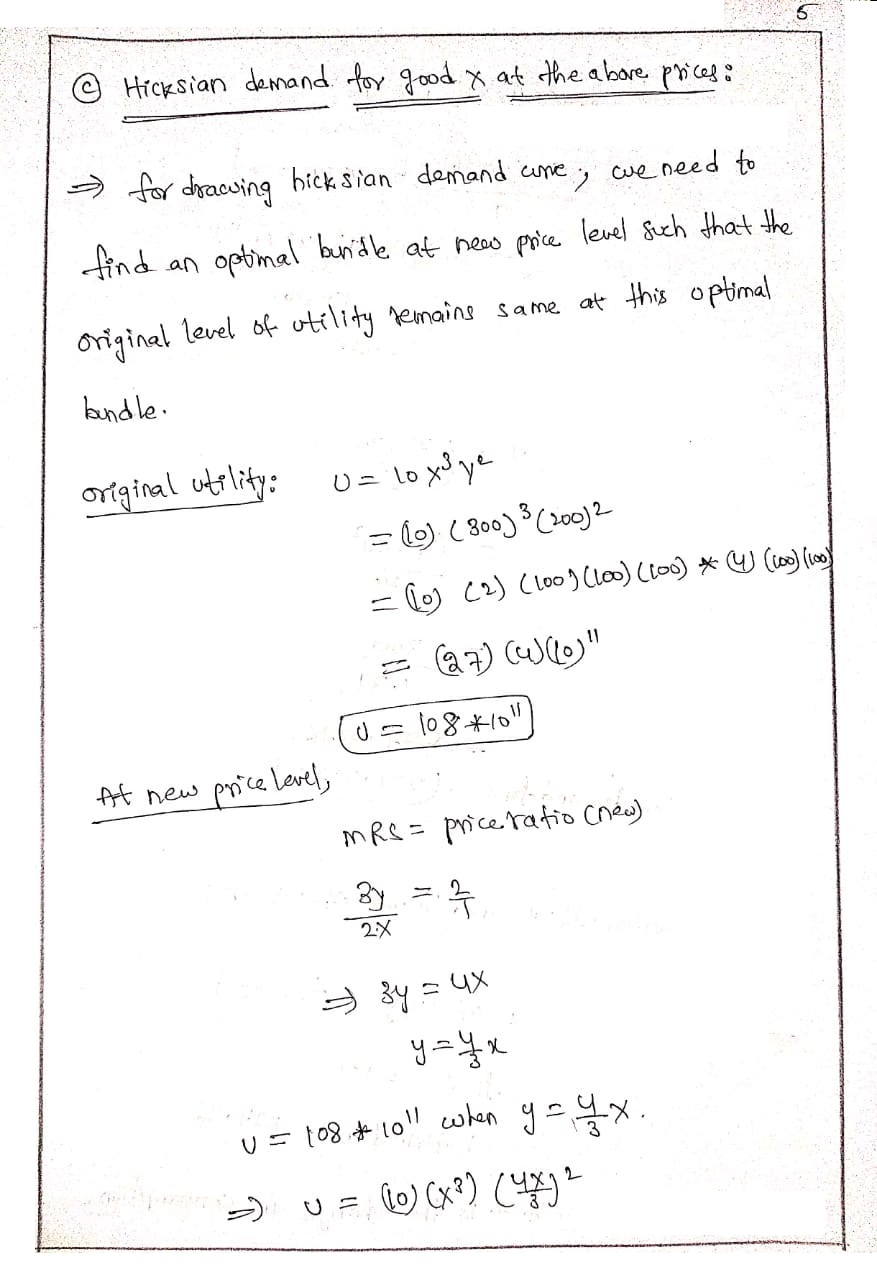 5
Ⓒ Hicksian demand for good X at the above prices:
⇒ for drawing hicksian demand curve, we need to
find an optimal bundle at new price level such that the
original level of utility remains same at this optimal
bundle.
original utility: U = 10 x³ y²
= (10) (300)³ (200)²
= (10) (2) (100) (100) (100) * (4) (100) (100)
= (27) (4) (10)¹¹
U = 108 * 10¹¹
At new price level,
MRS = price ratio (new)
3y/2x = 2/1
⇒ 3y = 4x
y = 4/3 x
U = 108 * 10¹¹ when y = 4/3 x.
⇒ U = (10) (x³) (4x/3)²